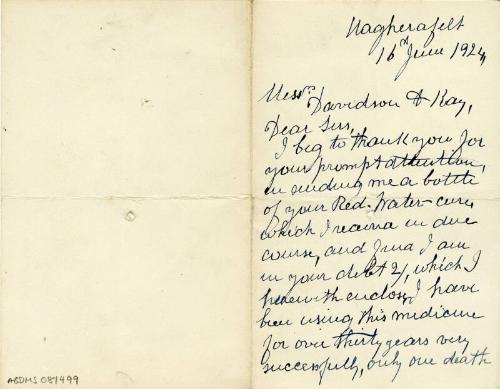 Magherafelt
16th June 1924
Messrs.
Davidson & Kay,
Dear Sirs,
I beg to thank you for
your prompt attention,
in sending me a bottle
of your Red-Water-cure,
which I receiva in due
course, and I am
in your debt 2/, which I
herewith enclose, I have
been using this medicine
for over thirty years very
successfully, only one death
ABDMS 081499